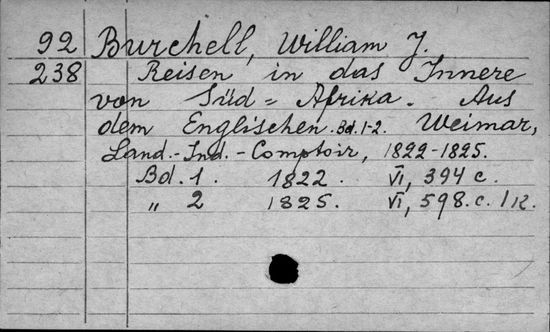 92 Burchell, William J.
238 Reisen in das Innere
von Süd-Afrika. Aus
dem Englischen. Bd. 1-2. Weimar,
Land.-Ind.-Comptoir, 1822-1825.
Bd. 1. 1822. VI, 394 c.
„ 2 1825. VI, 598. c. 1 K.